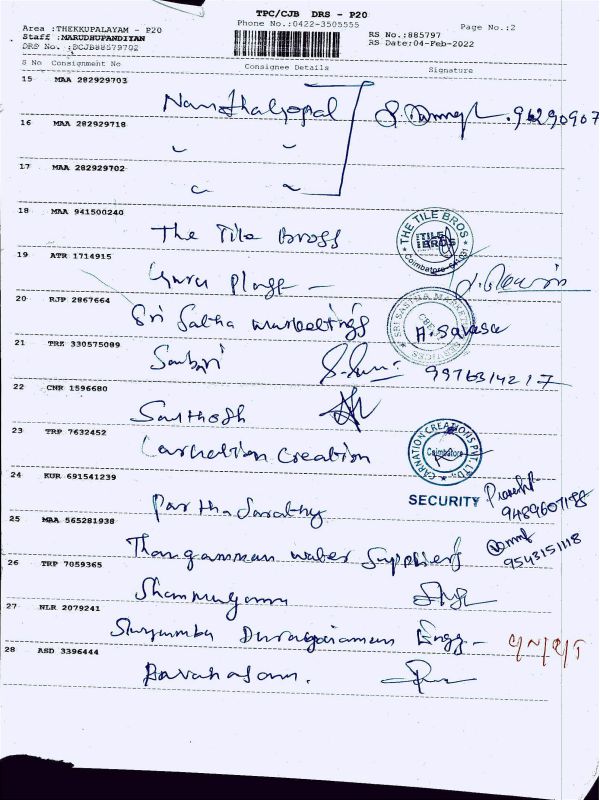 TPC/CJB DRS - P20
Phone No.:0422-3505555
Page No.:2
Area :THEKKUPALAYAM - P20
Staff :MARUDHUPANDIYAN
DRS No. :DCJB88579702
RS No.:885797
RS Date:04-Feb-2022
S No Consignment No Consignee Details Signature
15 MAA 282929703
16 MAA 282929718
17 MAA 282929702
18 MAA 941500240
The Tile Bross
THE TILE BROS
TILE BROS
Coimbatore
19 ATR 1714915
Guru Plast
20 RJP 2867664
Sri Sastha marketings
SRI SASTHA MARKETINGS
21 TRZ 330575089
Sabari
9976314217
22 CNR 1596680
Santhosh
23 TRP 7632452
Carnation Creation
CARNATION CREATIONS PVT. LTD.
Coimbatore
SECURITY
24 KUR 691541239
Parthasarathy
9489607198
25 MAA 565281938
Thangamman water Suppliers
9543151118
26 TRP 7059365
Shanmugam
27 NLR 2079241
Engg
28 ASD 3396444